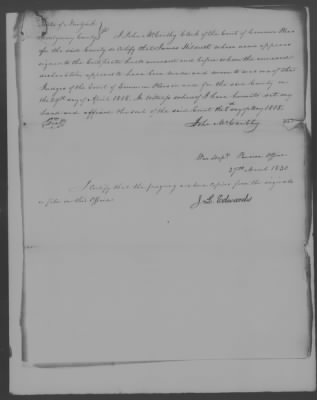 State of New York
Montgomery County } I John McCarthy Clerk of the Court of Common Pleas
for the said County do certify that James Hildreth whose name appears
signed to the Certificate hereto annexed and before whom the annexed
declaration appears to have been made and sworn to was one of the
Judges of the Court of Common Pleas in and for the said County on
the 29th day of April 1818. In testimony whereof I have hereunto set my
hand and affixed the seal of the said Court this day of May 1818.
John McCarthy
War Dept. Pension Office
27th March 1830
I certify that the foregoing are true Copies from the originals
on file in this Office
J. L. Edwards